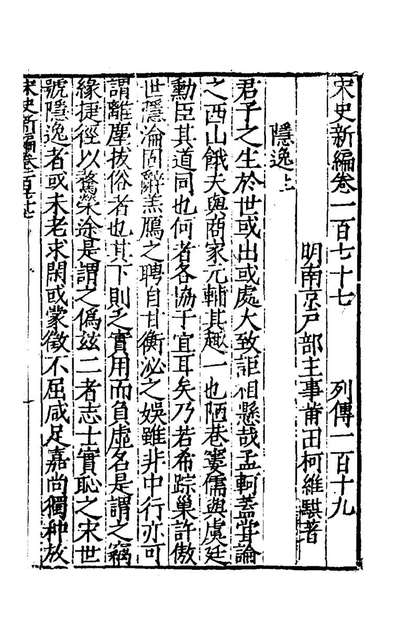 宋史新編卷一百七十七　列傳一百十九
明南京戶部主事莆田柯維騏著
隱逸上
君子之生於世或出或處大致詎相懸哉孟軻蓋嘗論
之西山餓夫與商家元輔其趣一也陋巷窶儒與虞廷
勳臣其道同也何者各協于宜耳矣乃若希踪巢許傲
世隱淪固辭羔鴈之聘自甘衡泌之娛雖非中行亦可
謂離塵拔俗者也其下則之實用而負虛名是謂之竊
緣捷徑以騖榮途是謂之僞兹二者志士實恥之宋世
號隱逸者或未老求閑或蒙徵不屈咸足嘉尚獨种放
宋史新編卷一百七十七